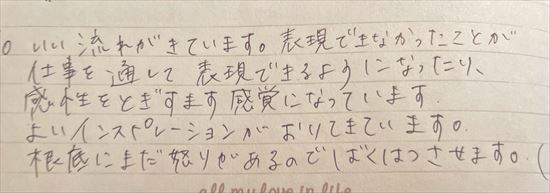 ○ いい流れがきています。表現できなかったことが
仕事を通して表現できるようになったり、
感性をとぎすます感覚になっています.
よいインスピレーションがおりてきています。
根底にまだ怒りがあるのでばくはつさせます。(
all my love in life